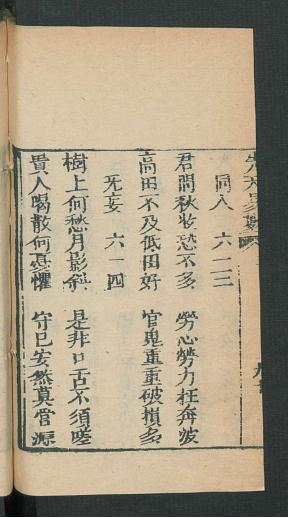 先天易數
同人 六一三
君問秋收恐不多 勞心勞力枉奔波
高田不及低田好 官鬼重重破損多
無妄 六一四
樹上何愁月影斜 是非口舌不須嗟
貴人喝散何憂懼 守已安然莫嘗源